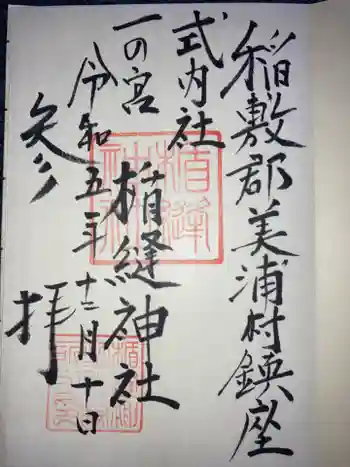 稲敷郡美浦村鎮座
式内社
一の宮 楯縫神社
令和五年十二月十日
参拝